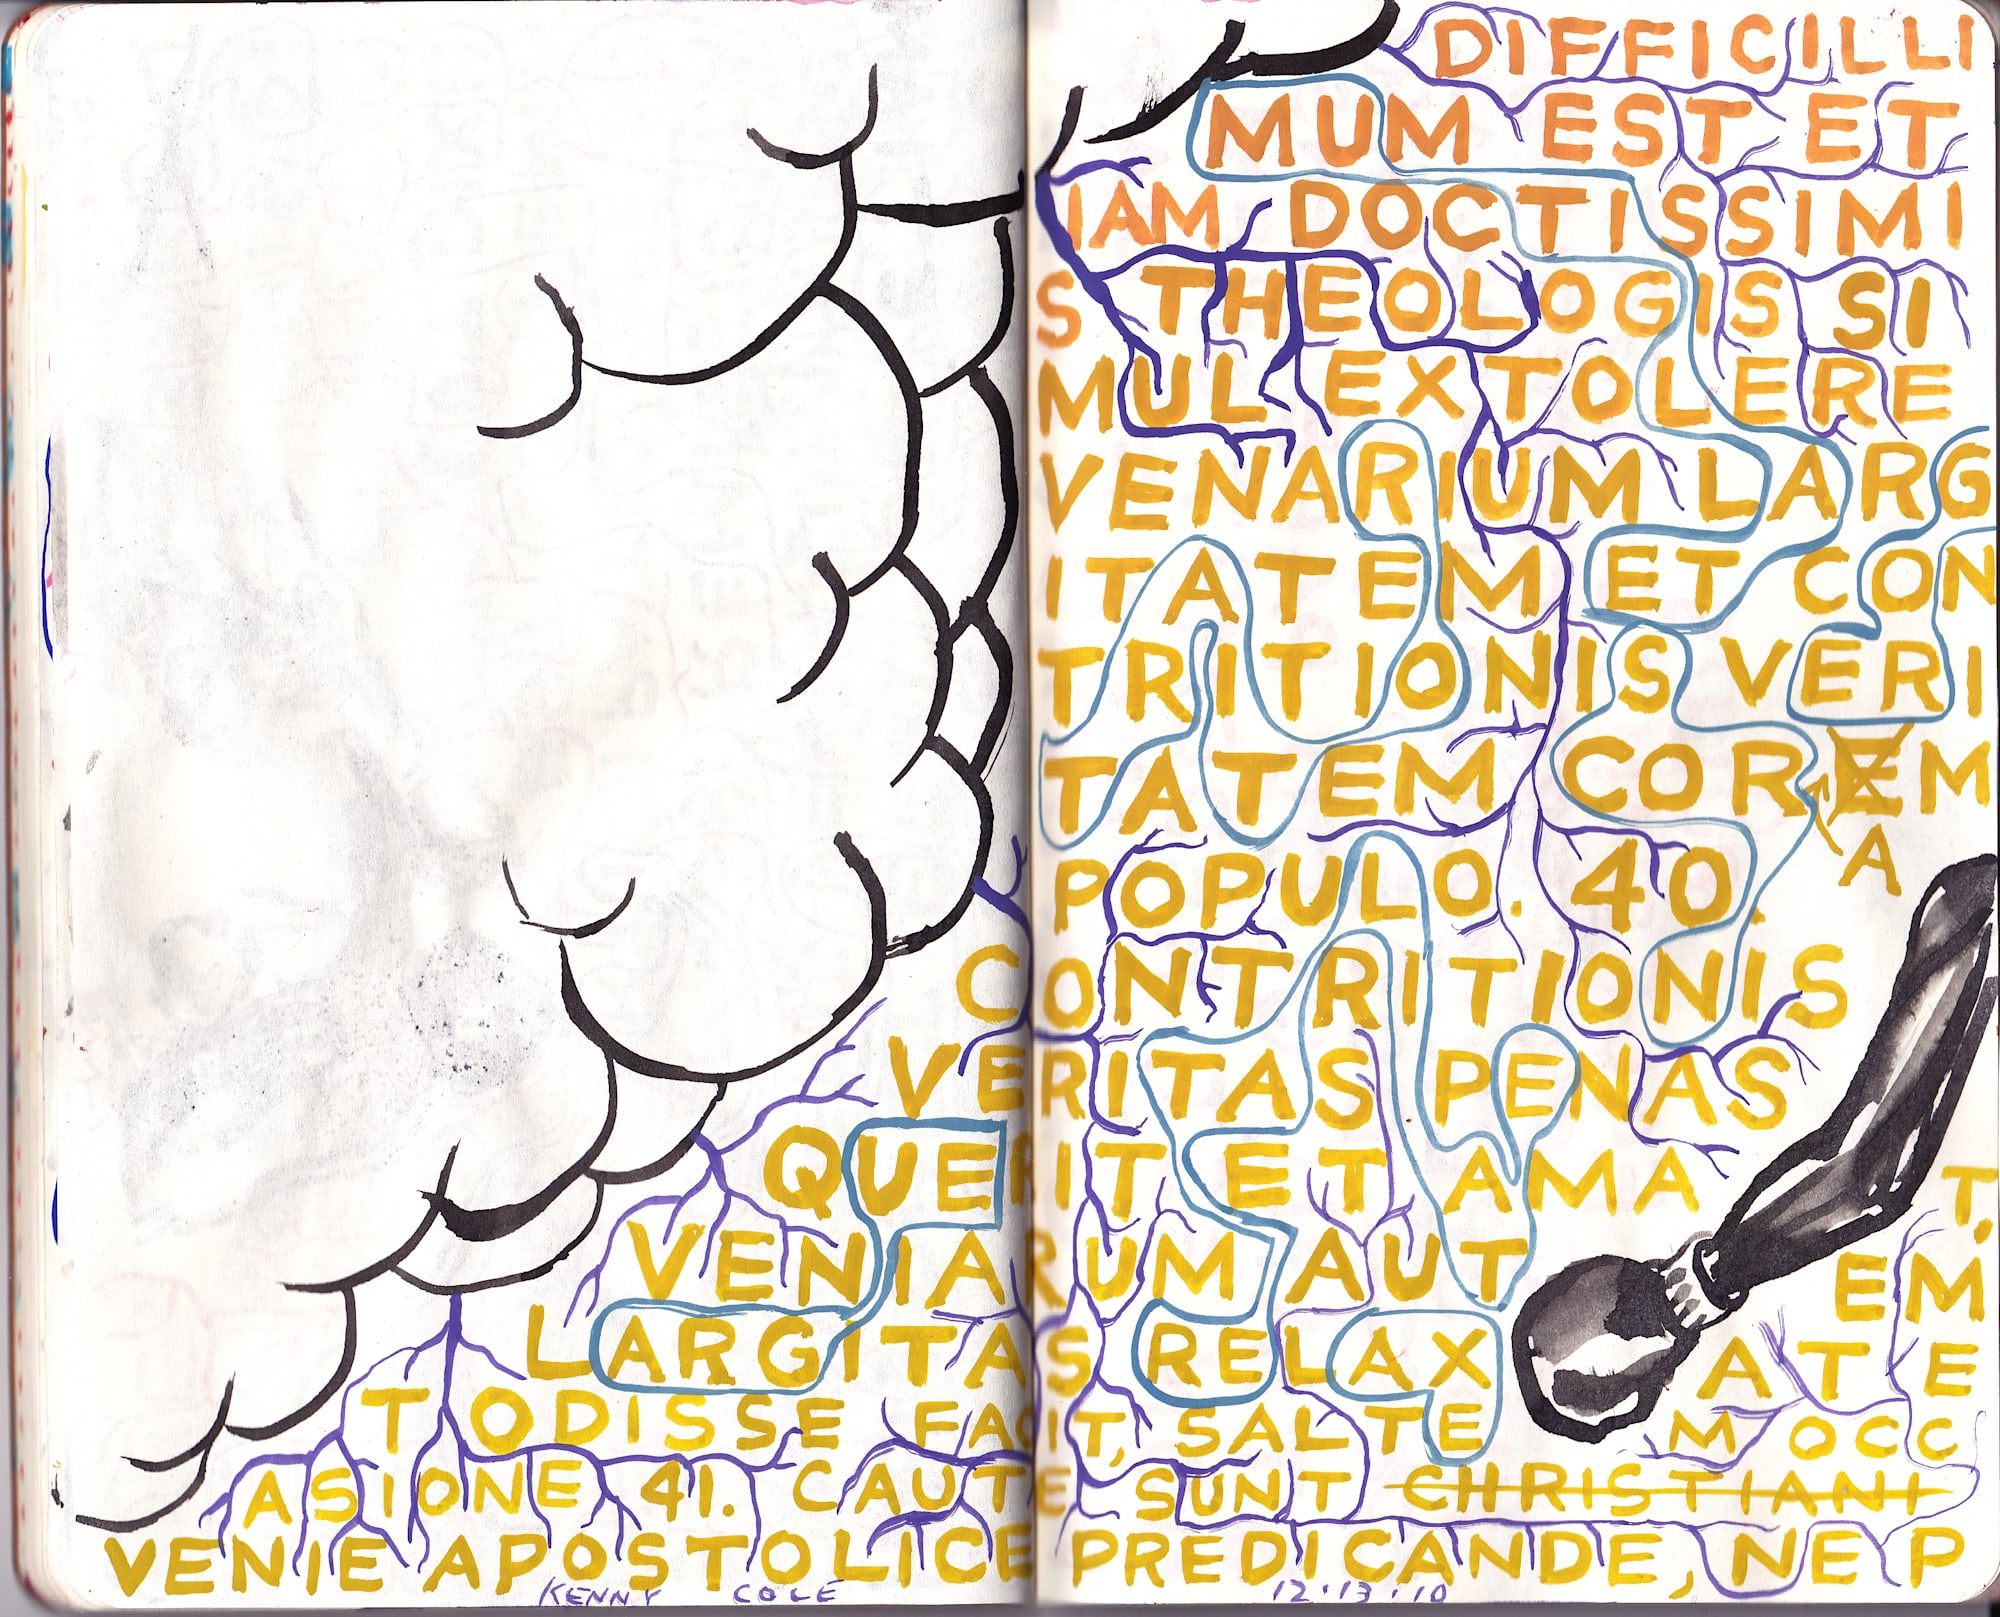 DIFFICILLI
MUM EST ET
IAM DOCTISSIMI
S THEOLOGIS SI
MUL EXTOLERE
VENARIUM LARG
ITATEM ET CON
TRITIONIS VERI
TATEM COREM
A
POPULO. 40.
CONTRITIONIS
VERITAS PENAS
QUERIT ET AMAT,
VENIARUM AUTEM
LARGITAS RELAXATE
T ODISSE FACIT, SALTEM OCC
ASIONE 41. CAUTE SUNT CHRISTIANI
VENIE APOSTOLICE PREDICANDE, NE P
KENNY COLE 12.13.10